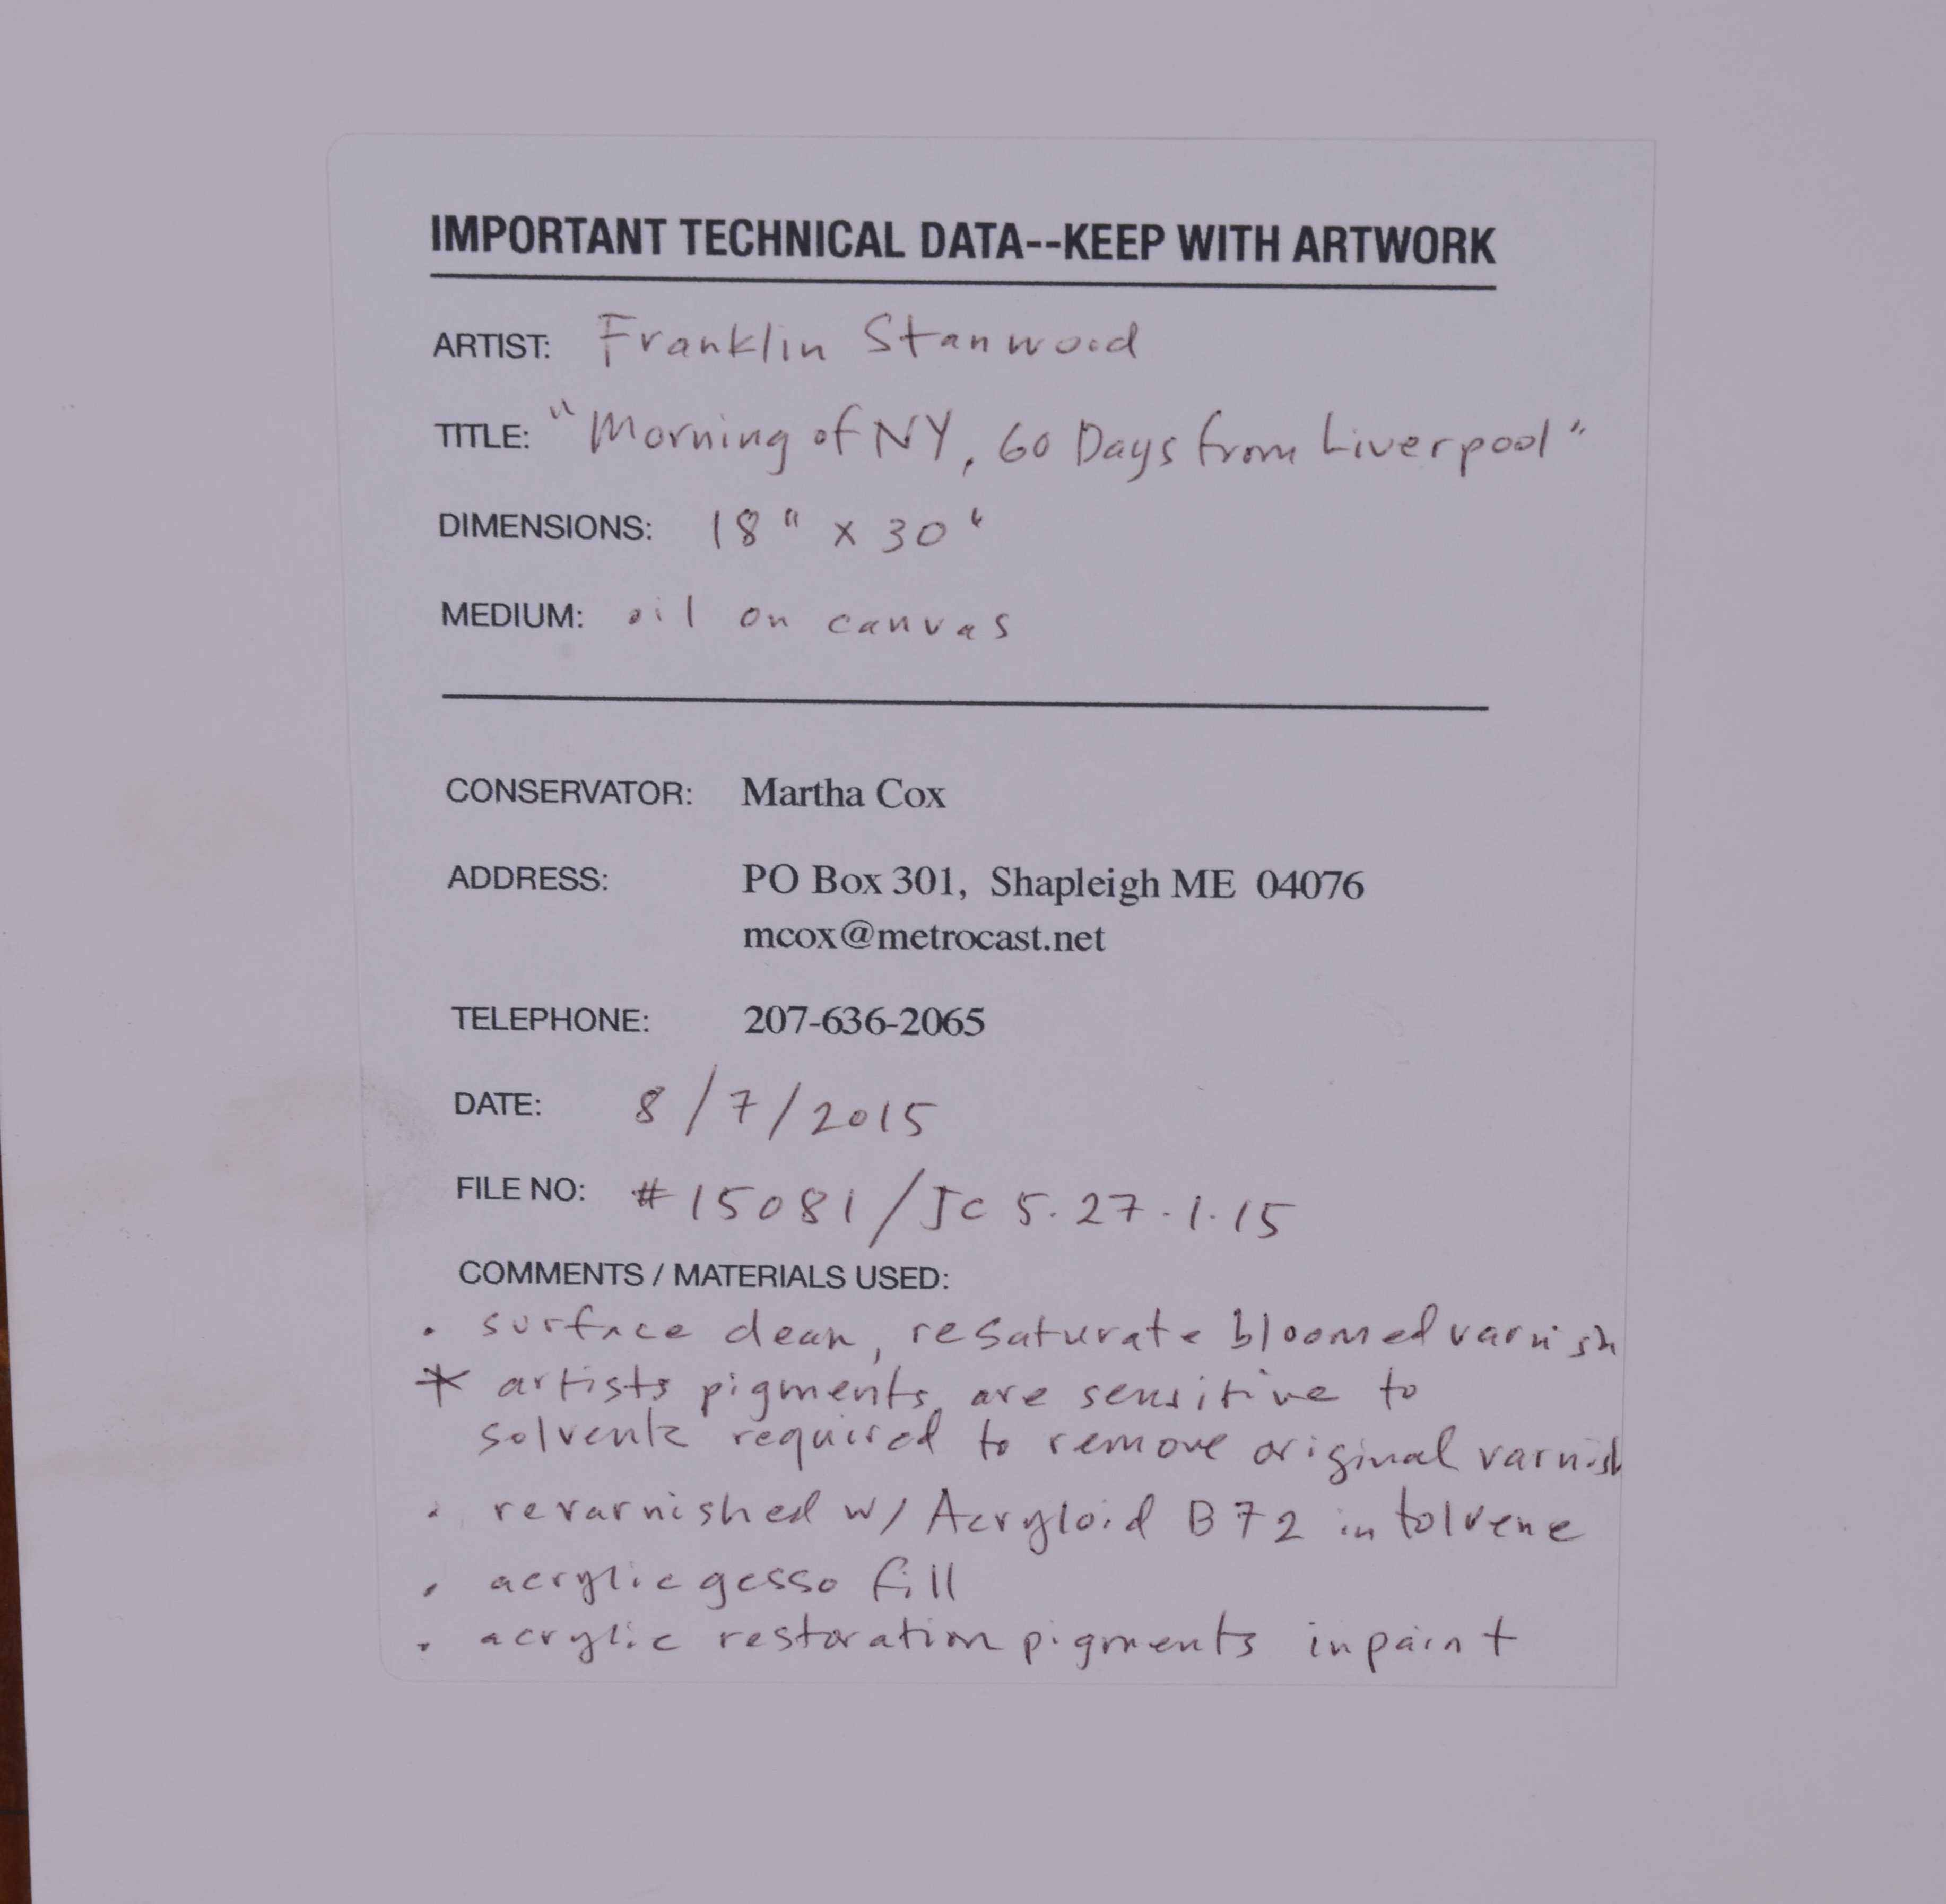 IMPORTANT TECHNICAL DATA--KEEP WITH ARTWORK
ARTIST: Franklin Stanwood
TITLE: "Morning of NY, 60 Days from Liverpool"
DIMENSIONS: 18" x 30"
MEDIUM: oil on canvas
CONSERVATOR: Martha Cox
ADDRESS: PO Box 301, Shapleigh ME 04076
mcox@metrocast.net
TELEPHONE: 207-636-2065
DATE: 8/7/2015
FILE NO: #15081/JC 5.27.1.15
COMMENTS / MATERIALS USED:
· surface clean, resaturate bloomed varnish
* artists pigments are sensitive to
solvents required to remove original varnish
· revarnished w/ Acryloid B72 in toluene
· acrylic gesso fill
· acrylic restoration pigments inpaint